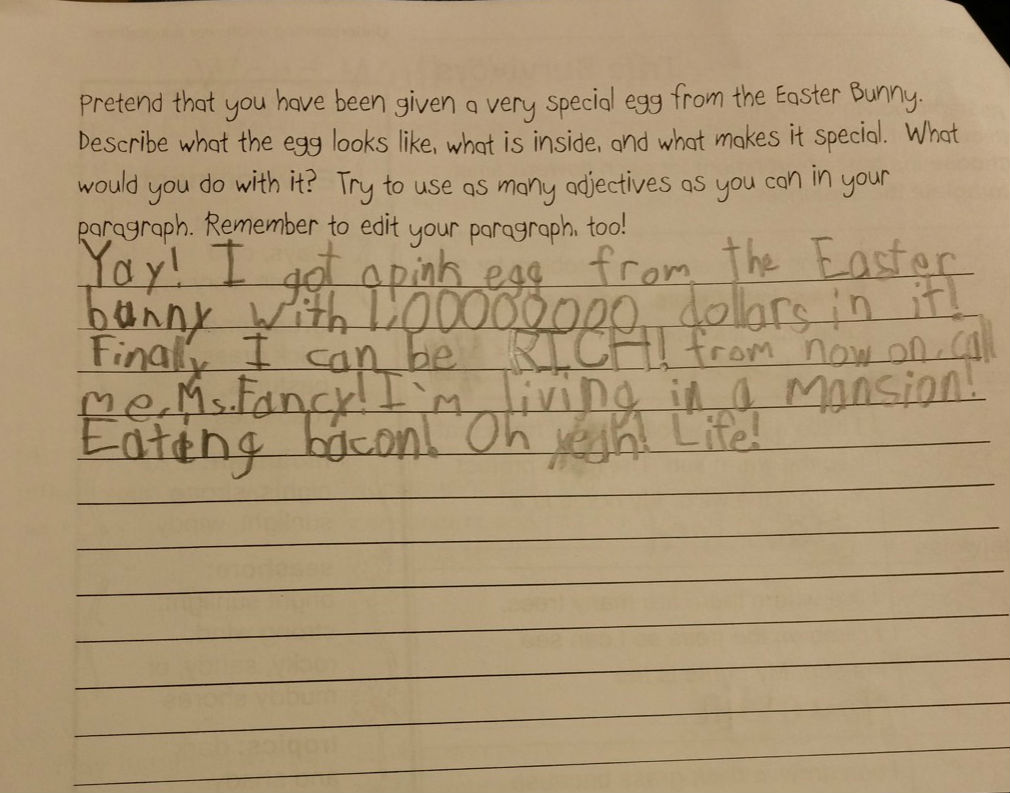 Pretend that you have been given a very special egg from the Easter Bunny.
Describe what the egg looks like, what is inside, and what makes it special. What
would you do with it? Try to use as many adjectives as you can in your
paragraph. Remember to edit your paragraph, too!
Yay! I got a pink egg from the Easter
bunny with 1,00000000 dollars in it!
Finally I can be RICH! from now on, call
me, Ms. Fancy! I'm living in a mansion!
Eating bacon! Oh yeah! Life!